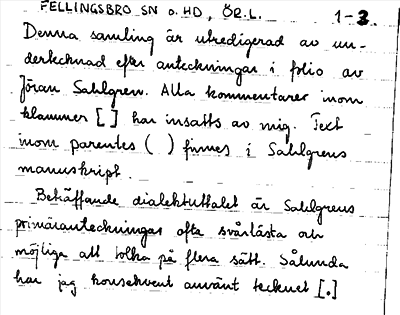 FELLINGSBRO SN o. HD, ÖR.L. 1-3.
Denna samling är utredigerad av un-
dertecknad efter anteckningar i folio av
Jöran Sahlgren. Alla kommentarer inom
klammer [ ] har insatts av mig. Text
inom parentes ( ) finnes i Sahlgrens
manuskript.
Beträffande dialektuttalet är Sahlgrens
primäranteckningar ofta svårlästa och
möjliga att tolka på flera sätt. Sålunda
har jag konsekvent använt tecknet [.]